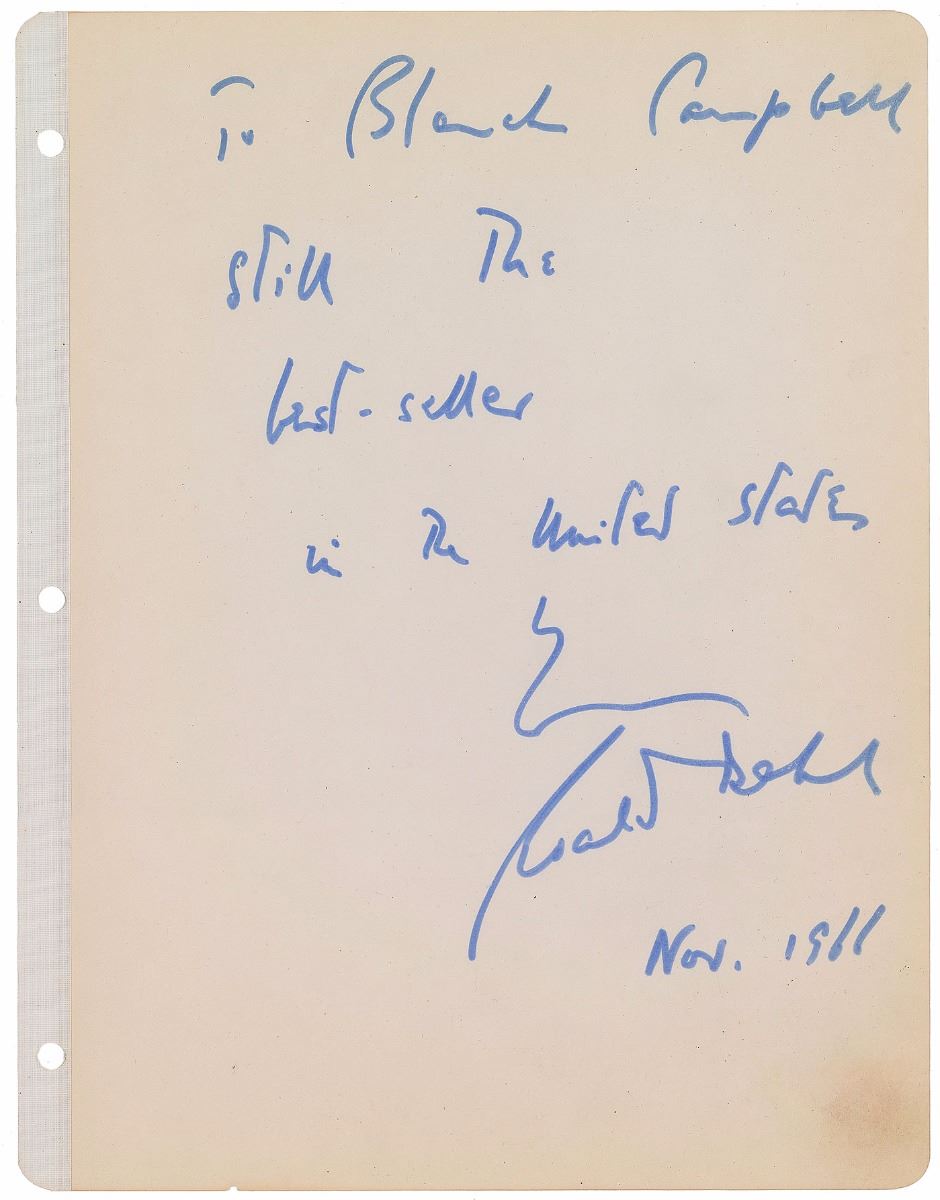 To Blanch Campbell
still The
best-seller
in The United States
Roald Dahl
Nov. 1966